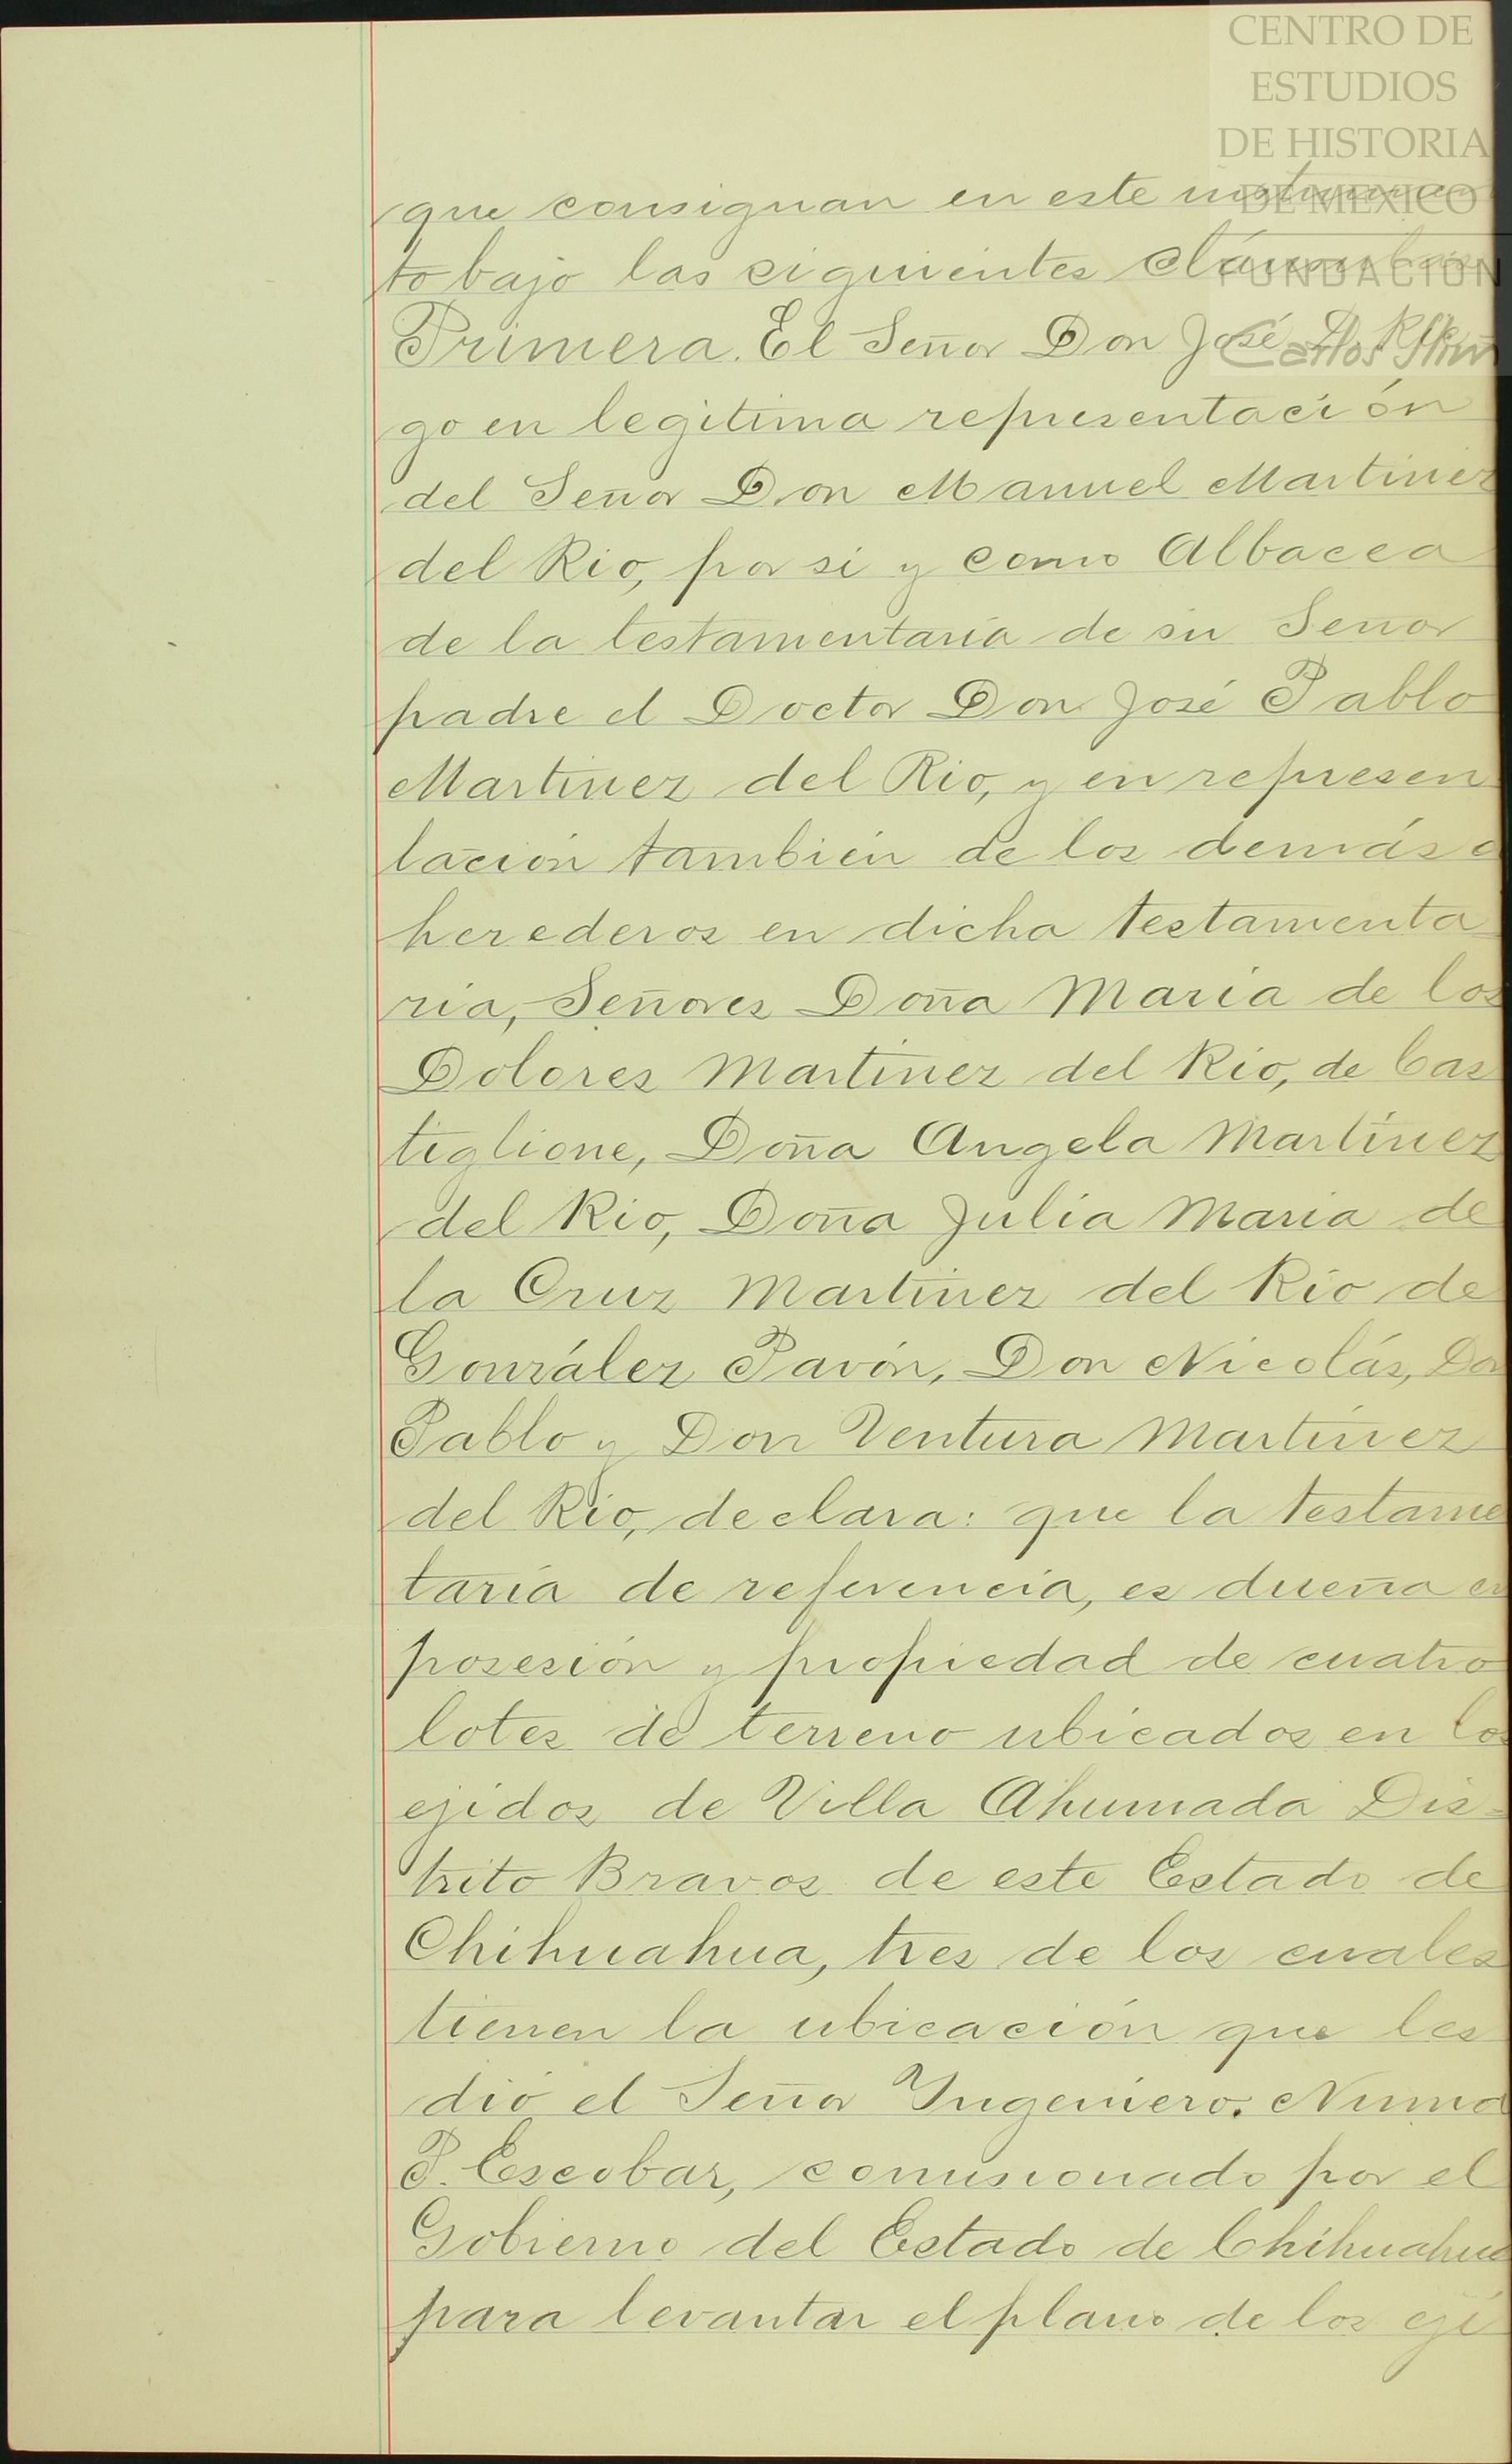 CENTRO DE
ESTUDIOS
DE HISTORIA
DE MEXICO
FUNDACION
Carlos Slim
que consignan en este instrumen
to bajo las siguientes cláusulas
Primera. El Señor Don José
go en legitima representación
del Señor Don Manuel Martinez
del Rio, por si y como Albacea
de la testamentaria de su Señor
padre el Doctor Don José Pablo
Martinez del Rio, y en represen
tación también de los demás
herederos en dicha testamenta
ria, Señores Doña Maria de los
Dolores Martinez del Rio, de Cas
tiglione, Doña Angela Martínez
del Rio, Doña Julia Maria de
la Cruz Martinez del Rio de
González Pavón, Don Nicolás, Don
Pablo y Don Ventura Martinez
del Rio, declara: que la testame
taria de referencia, es dueña en
posesión y propiedad de cuatro
lotes de terreno ubicados en los
ejidos de Villa Ahumada Dis-
trito Bravos de este Estado de
Chihuahua, tres de los cuales
tienen la ubicación que les
dió el Señor Ingeniero. Numa
P. Escobar, comisionado por el
Gobierno del Estado de Chihuahua
para levantar el plano de los eji